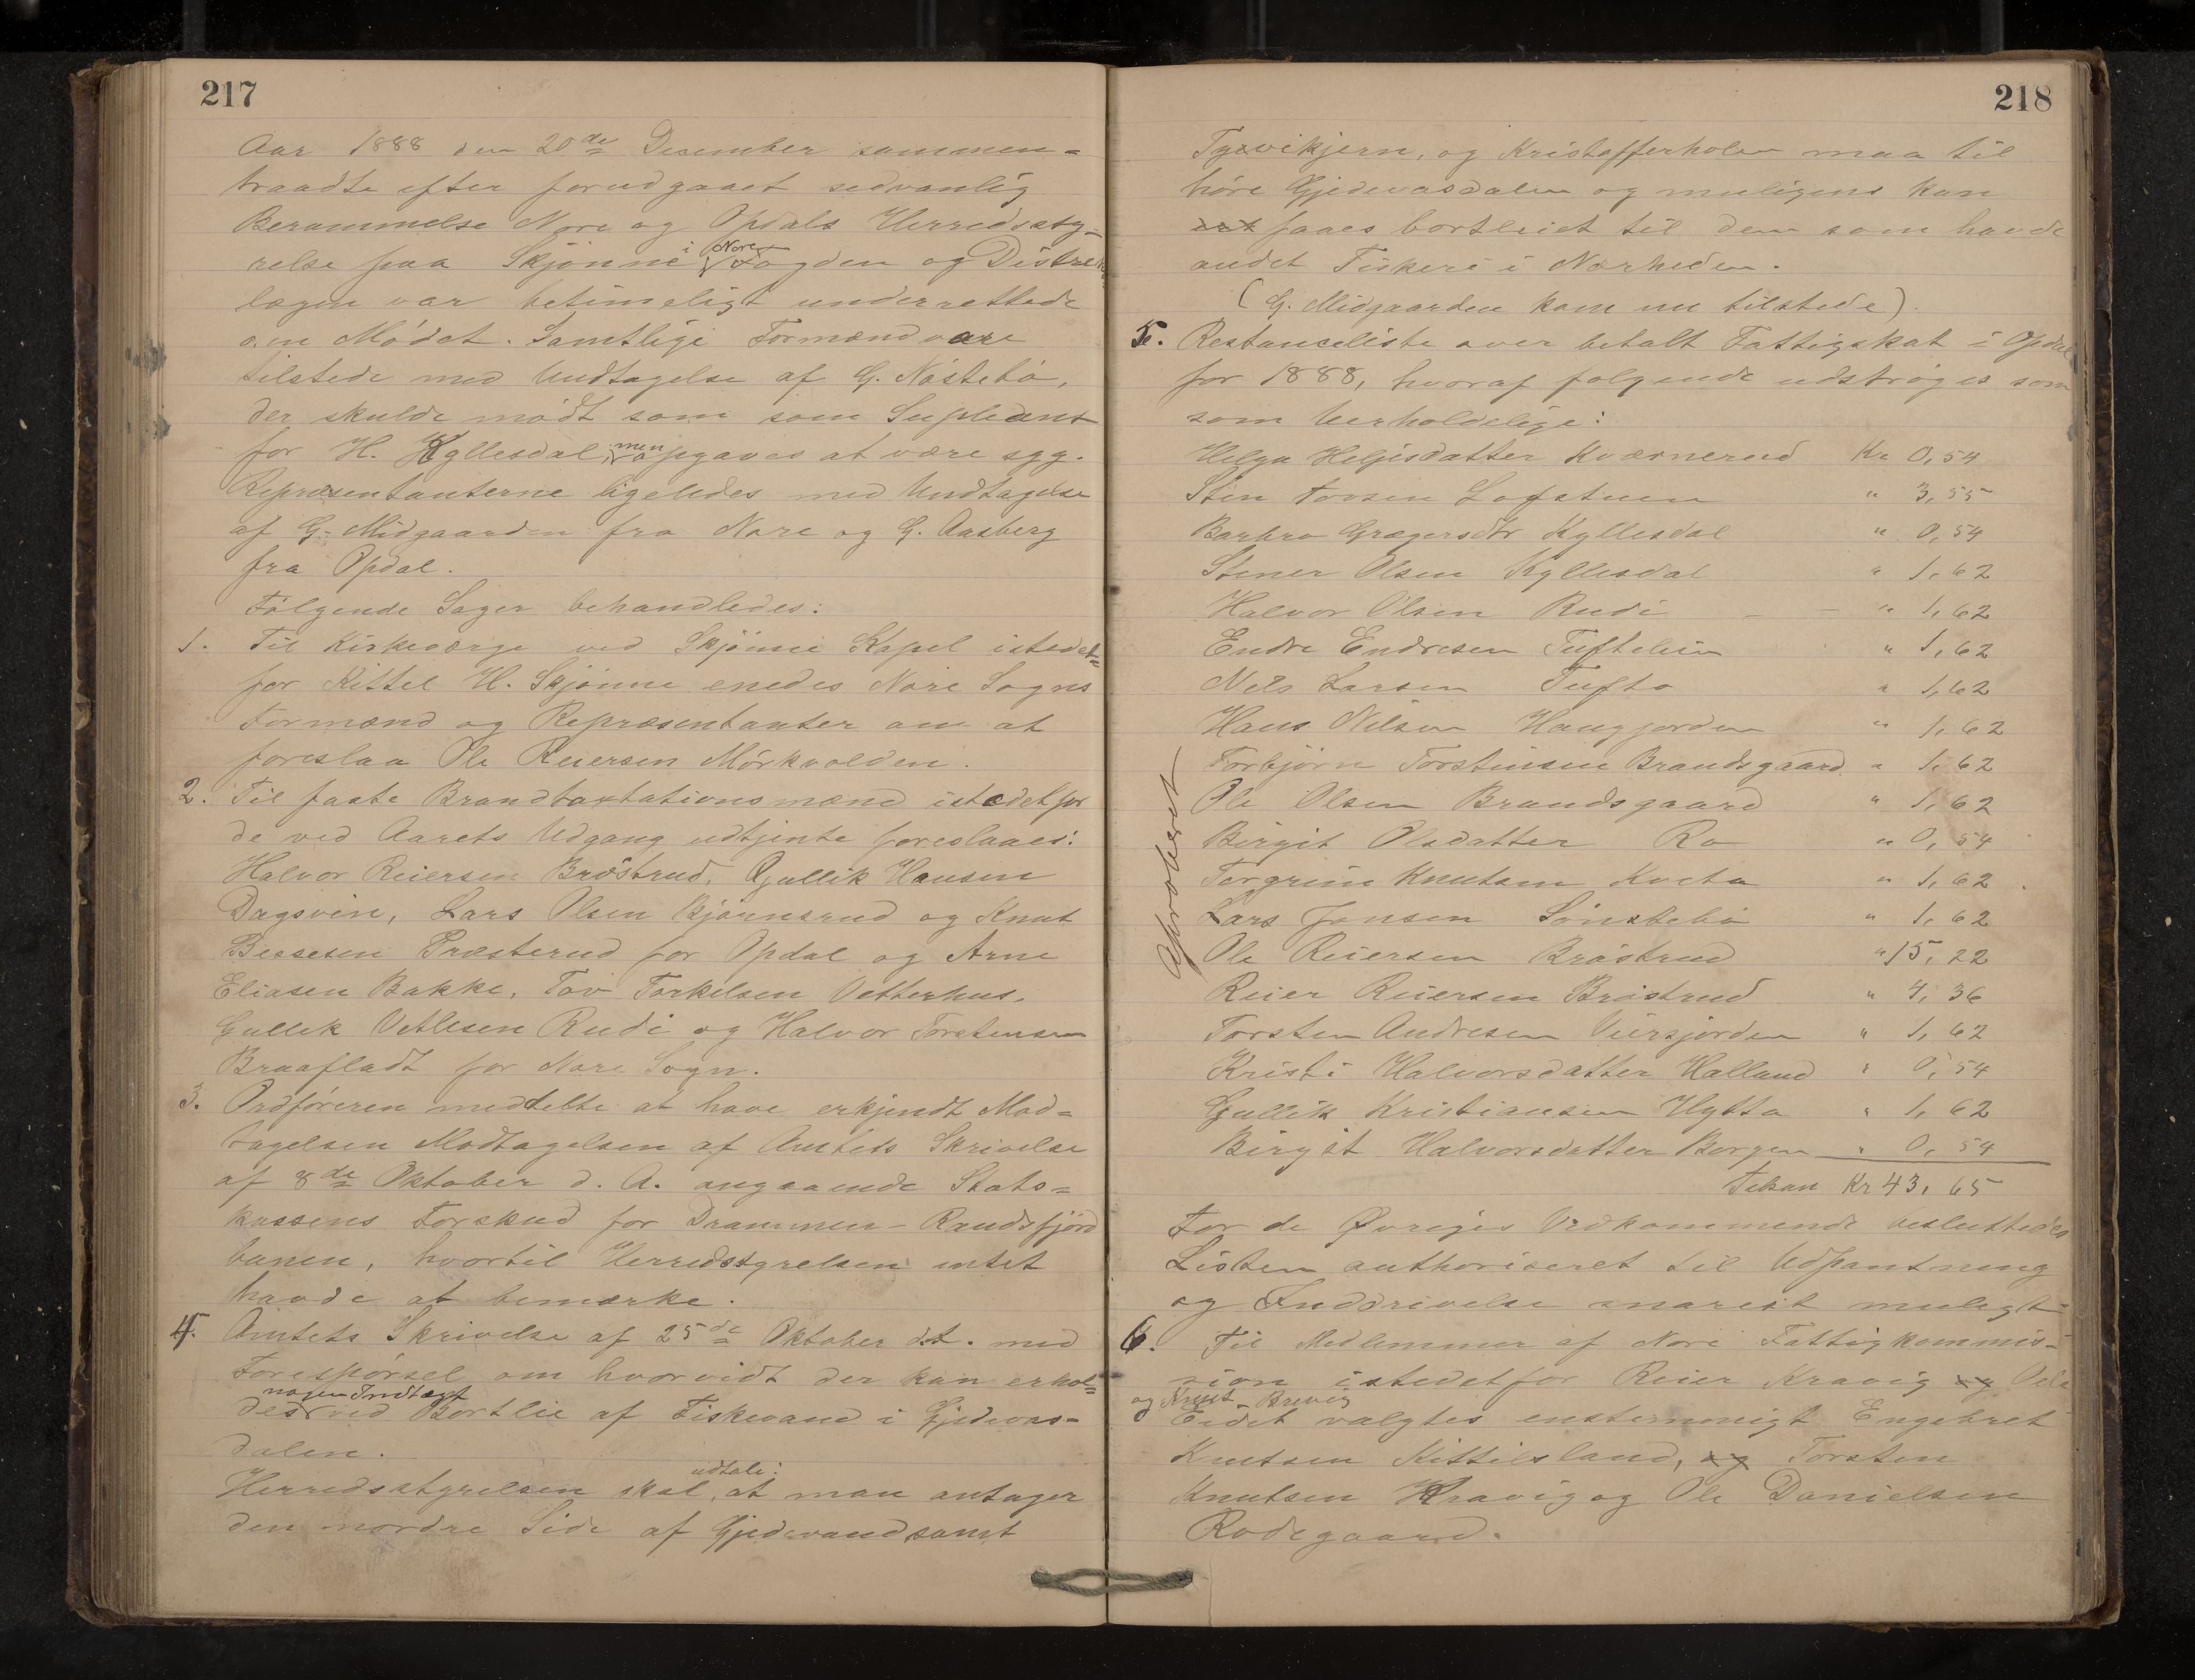 217
Aar 1888 den 20de December sammen=
traadte efter forudgaaet sedvanlig
Berammelse Nore og Opdals Herredssty=
relse paa Skjönne i Nore Fogden og Distrikts
lægen var betimeligt underrettede
om Mödet. Samtlige Formænd vare
tilstede med Undtagelse af G. Nöstebö,
der skulde mödt som som Supleant
for H. Kyllesdal, men opgaves at være syg.
Repræsentanterne ligeledes med Undtagelse
af G. Midgaarden fra Nore og G. Aasberg
fra Opdal.
Fölgende Sager behandledes:
1. Til Kirkeværge ved Skjönne Kapel istedet=
for Kittel H. Skjönne enedes Nore Sogns
Formænd og Repræsentanter om at
foreslaa Ole Reiersen Mörkvolden.
2. Til faste Brandtaxtationsmænd istedetfor
de ved Aarets Udgang udtjente foreslaaes:
Halvor Reiersen Bröstrud, Gullik Hansen
Dagsvin, Lars Olsen Björnsrud og Knut
Bessesen Præsterud for Opdal og Arne
Eliasen Bakke, Tov Torkelsen Vetterhus,
Gullik Vetlesen Rudi og Halvor Torstensen
Braafladt for Nore Sogn.
3. Ordföreren meddelte at have erkjendt Mod=
tagelsen Modtagelsen af Amtets Skrivelse
af 8de Oktober d. A. angaaende Stats=
kassens Forskud for Drammen-Randsfjord
banen, hvortil Herredsstyrelsen intet
havde at bemærke.
4. Amtets Skrivelse af 25de Oktober d.A. med
Forespörsel om hvorvidt der kan erhol=
des nogen Indtægt ved Bortleie af Fiskevand i Gjedevas=
dalen.
Herredsstyrelsen skal udtale: at man antager
den nordre Side af Gjedevand samt
218
Tyrvikjern, og Kristofferholen maa til
höre Gjedevasdalen og muligens kan
det faaes bortleiet til dem som havde
andet Fiskeri i Nærheden.
(G. Midgaarden kom nu tilstede).
5. Restanceliste over betalt Fattigskat i Opdal
for 1888, hvoraf følgende udströges som
som Uerholdelige:
Helga Helgesdatter Kværnerud Kr 0,54
Sten Tovsen Lofstuen " 3,55
Barbro Grægersdtr Kyllesdal " 0,54
Stener Olsen Kyllesdal " 1,62
Halvor Olsen Rudi " 1,62
Endre Endresen Tuftelein " 1,62
Nels Larsen Tufto " 1,62
Hans Nilsen Haugjorden " 1,62
Torbjörn Torstensen Brandsgaard " 1,62
Ole Olsen Brandsgaard " 1,62
Birgit Olsdatter Ro " 0,54
Torgrim Knutsen Kveta " 1,62
Lars Jonsen Sönstebö " 1,62
Ole Reiersen Bröstrud " 15,22
Reier Reiersen Bröstrud " 4,36
Torsten Andresen Viersjorden " 1,62
Kristi Halvorsdatter Halland " 0,54
Gullik Kristiansen Hytta " 1,62
Birgit Halvorsdatter Borgen " 0,54
Tilsam Kr 43,65
Aproberet
For de Øvriges Vedkommende besluttedes
Listen authoriseret til Udpantning
og Inddrivelse snarest muligt
6. Til Medlemmer af Nore Fattigkommis=
sion istedetfor Reier Kravig og Ole
Eidet og Knut Brevig valgtes enstemmigt Engebret
Knutsen Kittilsland, og Torsten
Knutsen Kravig og Ole Danielsen
Rodegaard.